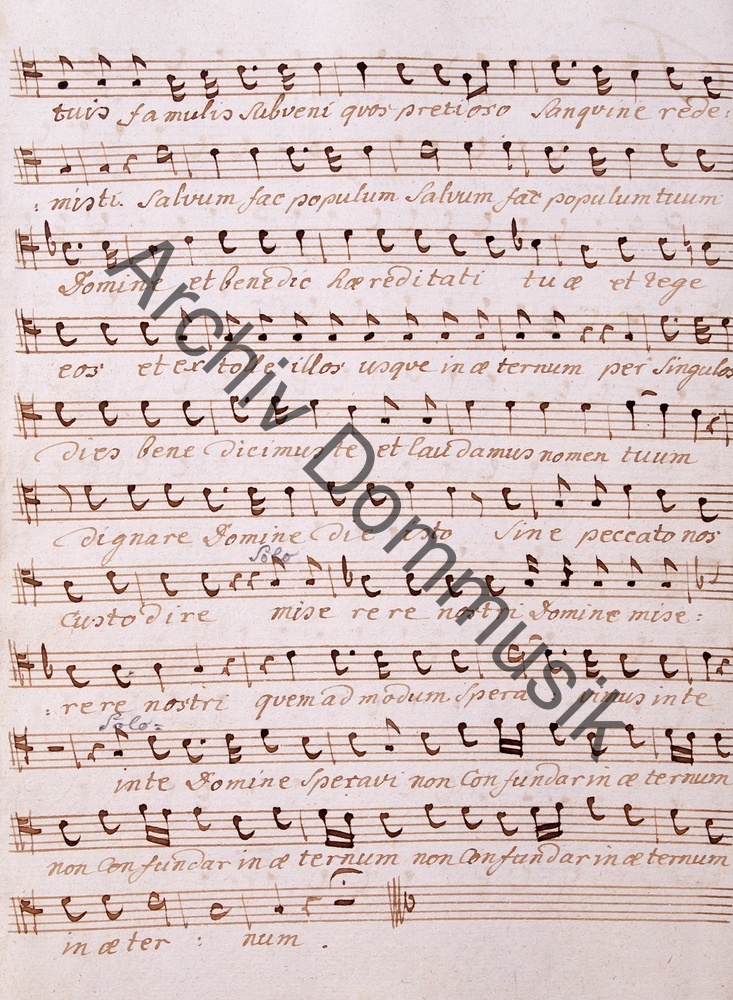 tuis famulis subveni quos pretioso Sanguine rede:
: misti. Salvum fac populum Salvum fac populum tuum
Domine et benedic hæreditati tuæ et rege
eos et extolle illos usque in æternum per Singulos
dies bene dicimus te et laudamus nomen tuum
dignare Domine die isto Sine peccato nos
Solo
Custodire mise re re nostri Domine mise:
: re re nostri quem ad modum Spera vimus in te
Solo=
in te Domine Speravi non Confundar in æ ternum
non Confundar in æ ternum non Confundar in æ ternum
in æ ter : num .
Archiv Dommusik